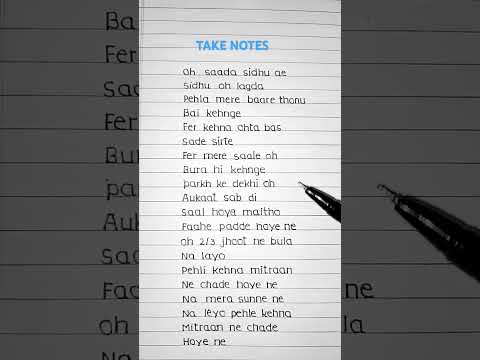 TAKE NOTES
Oh saada sidhu ae
Sidhu oh lagda
Pehla mere baare thonu
Bai kehnge
Fer kehna ohta bas
Sade sirte
Fer mere saale oh
Bura hi kehnge
parkh ke dekhi oh
Aukaat sab di
Saal hoya maitho
Faahe padde haye ne
oh 2/3 jhoot ne bula
Na layo
Pehli kehna mitraan
Ne chade haye ne
Na mera sunne ne
Na leyo pehle kehna
Mitraan ne chade
Haye ne